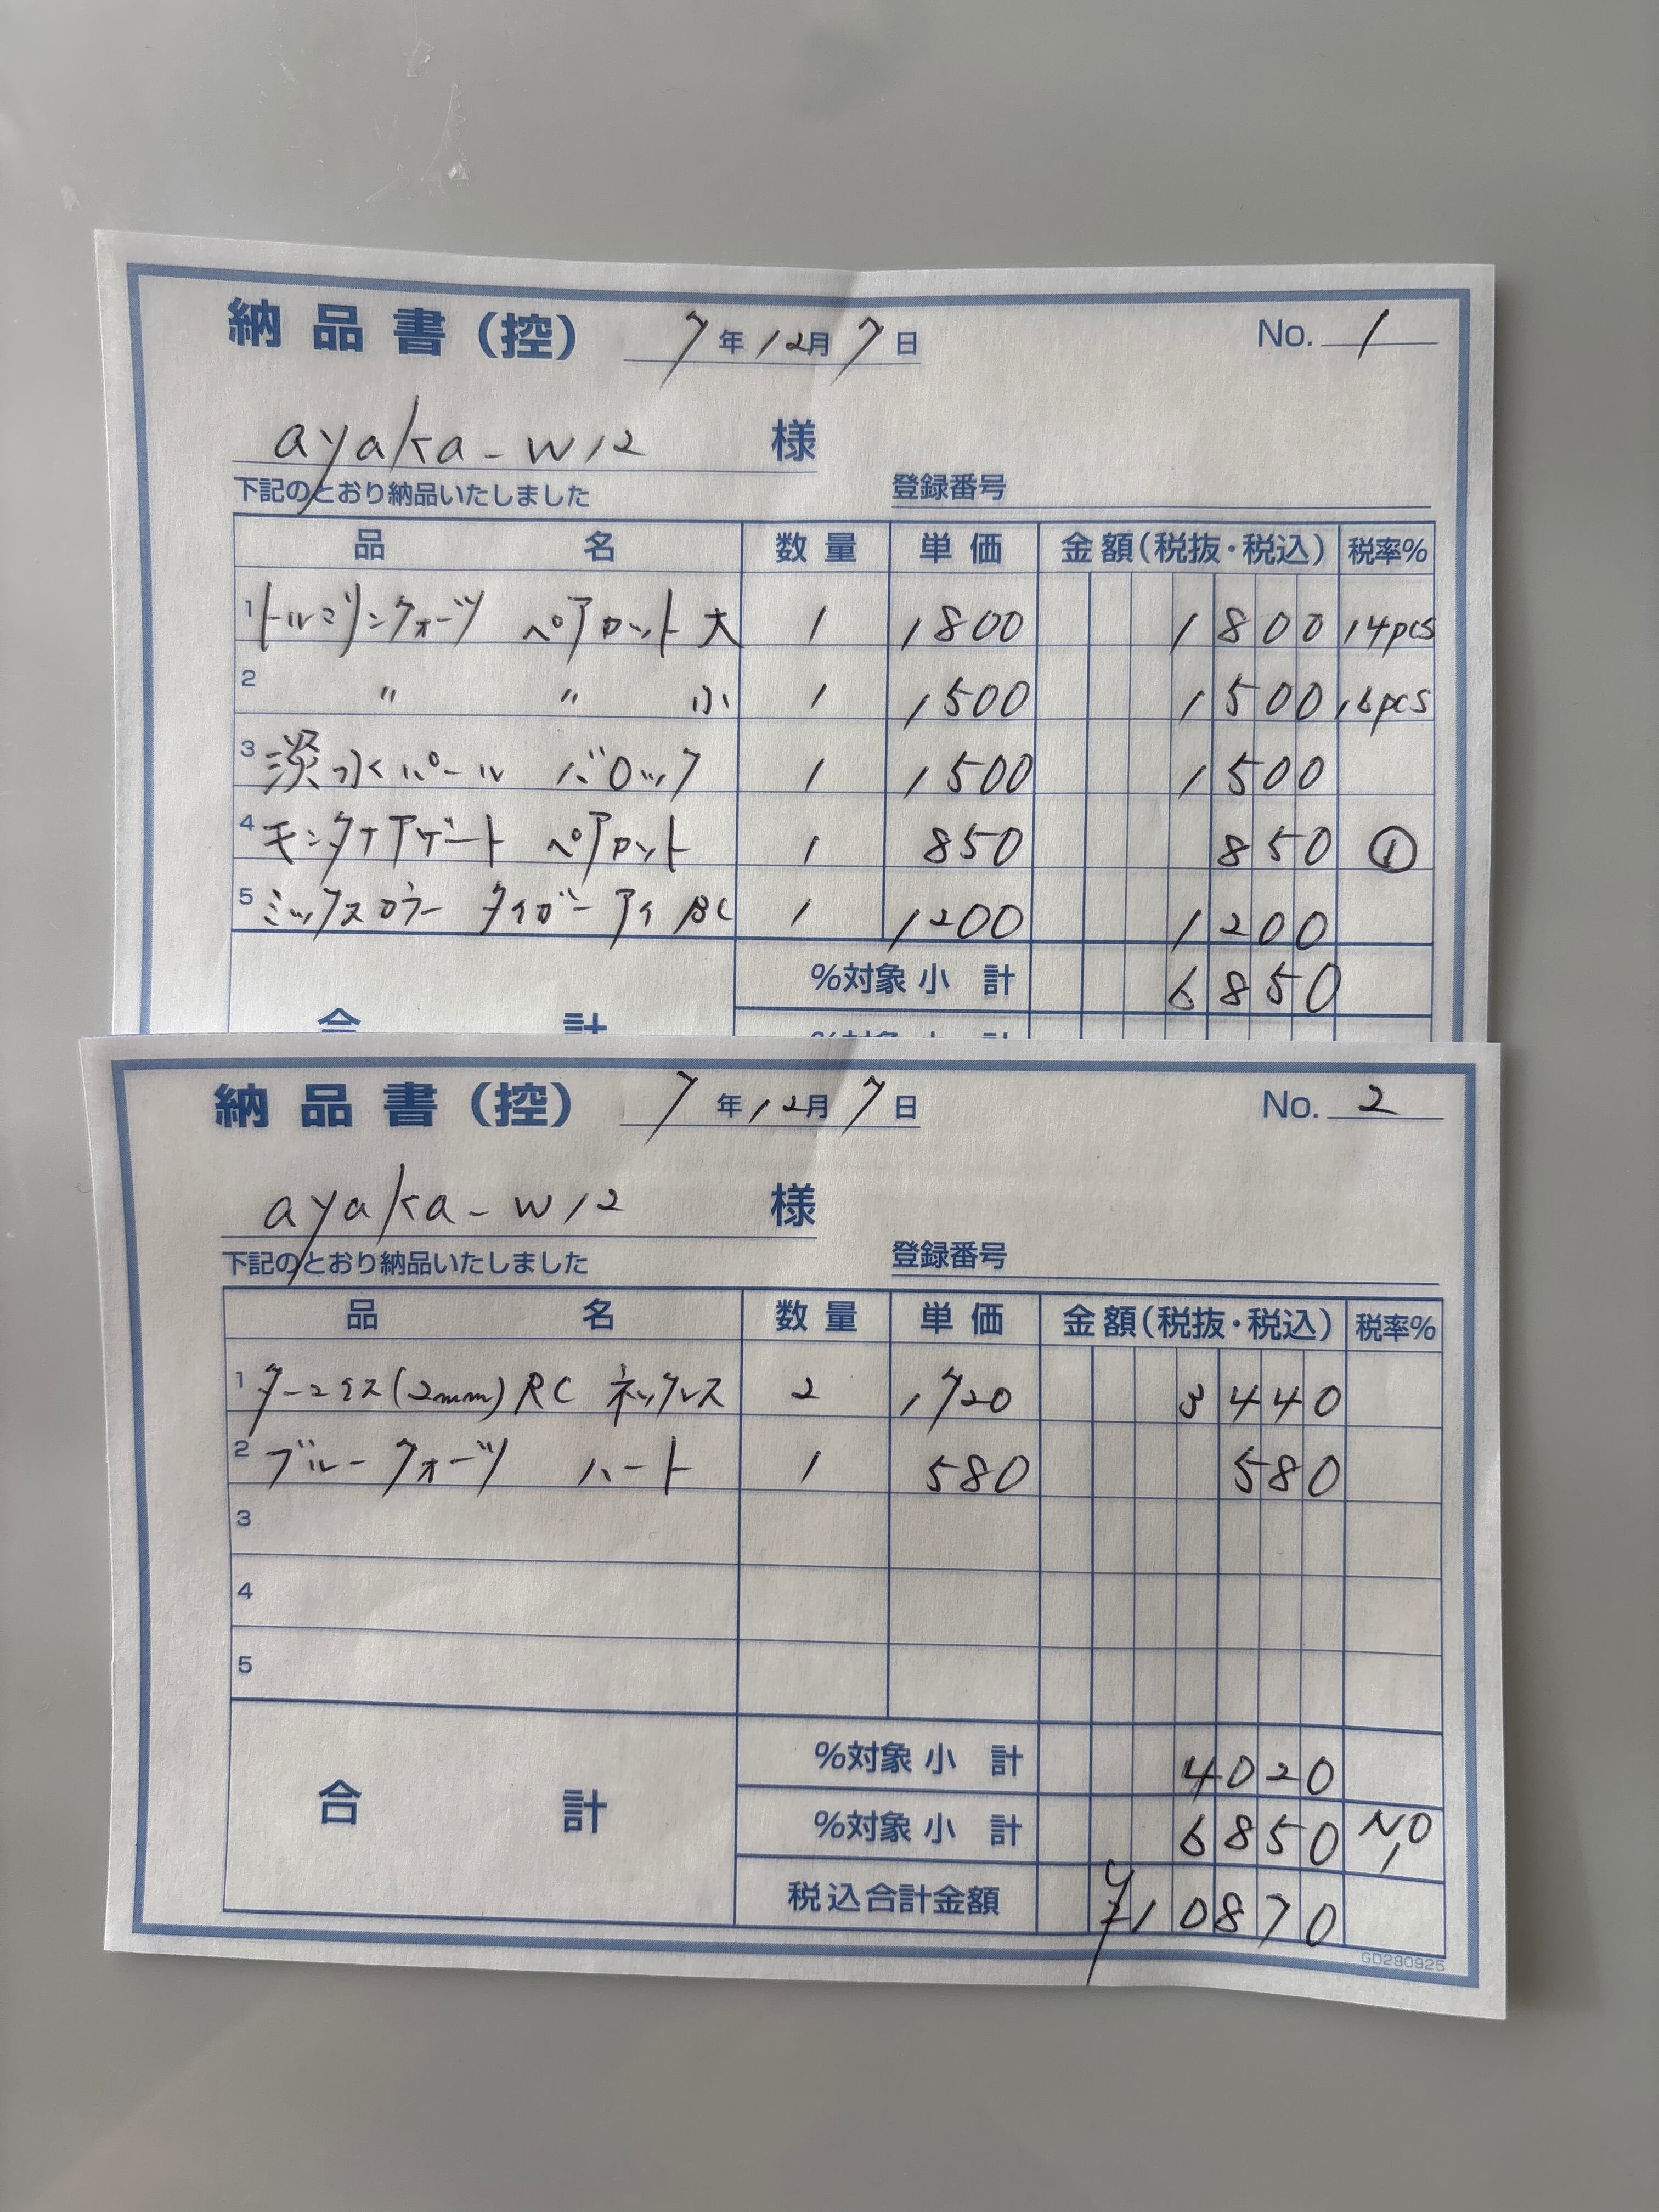 納品書(控) 7年12月7日 No. 1
ayaka-w12 様
下記のとおり納品いたしました 登録番号
品名 数量 単価 金額(税抜・税込) 税率%
1 トルマリンクォーツ ペアカット大 1 1800 1800 14pcs
2 〃 〃 小 1 1500 1500 16pcs
3 淡水パール バロック 1 1500 1500
4 モンタナアゲート ペアカット 1 850 850 ①
5 ミックスカラー タイガーアイ BC 1 1200 1200
%対象小計 6850
合計
%対象小計
納品書(控) 7年12月7日 No. 2
ayaka-w12 様
下記のとおり納品いたしました 登録番号
品名 数量 単価 金額(税抜・税込) 税率%
1 ターコイス(2mm)RC ネックレス 2 1720 3440
2 ブルークォーツ ハート 1 580 580
3
4
5
%対象小計 4020
合計 %対象小計 6850 NO 1
税込合計金額 ¥10870
GD290925